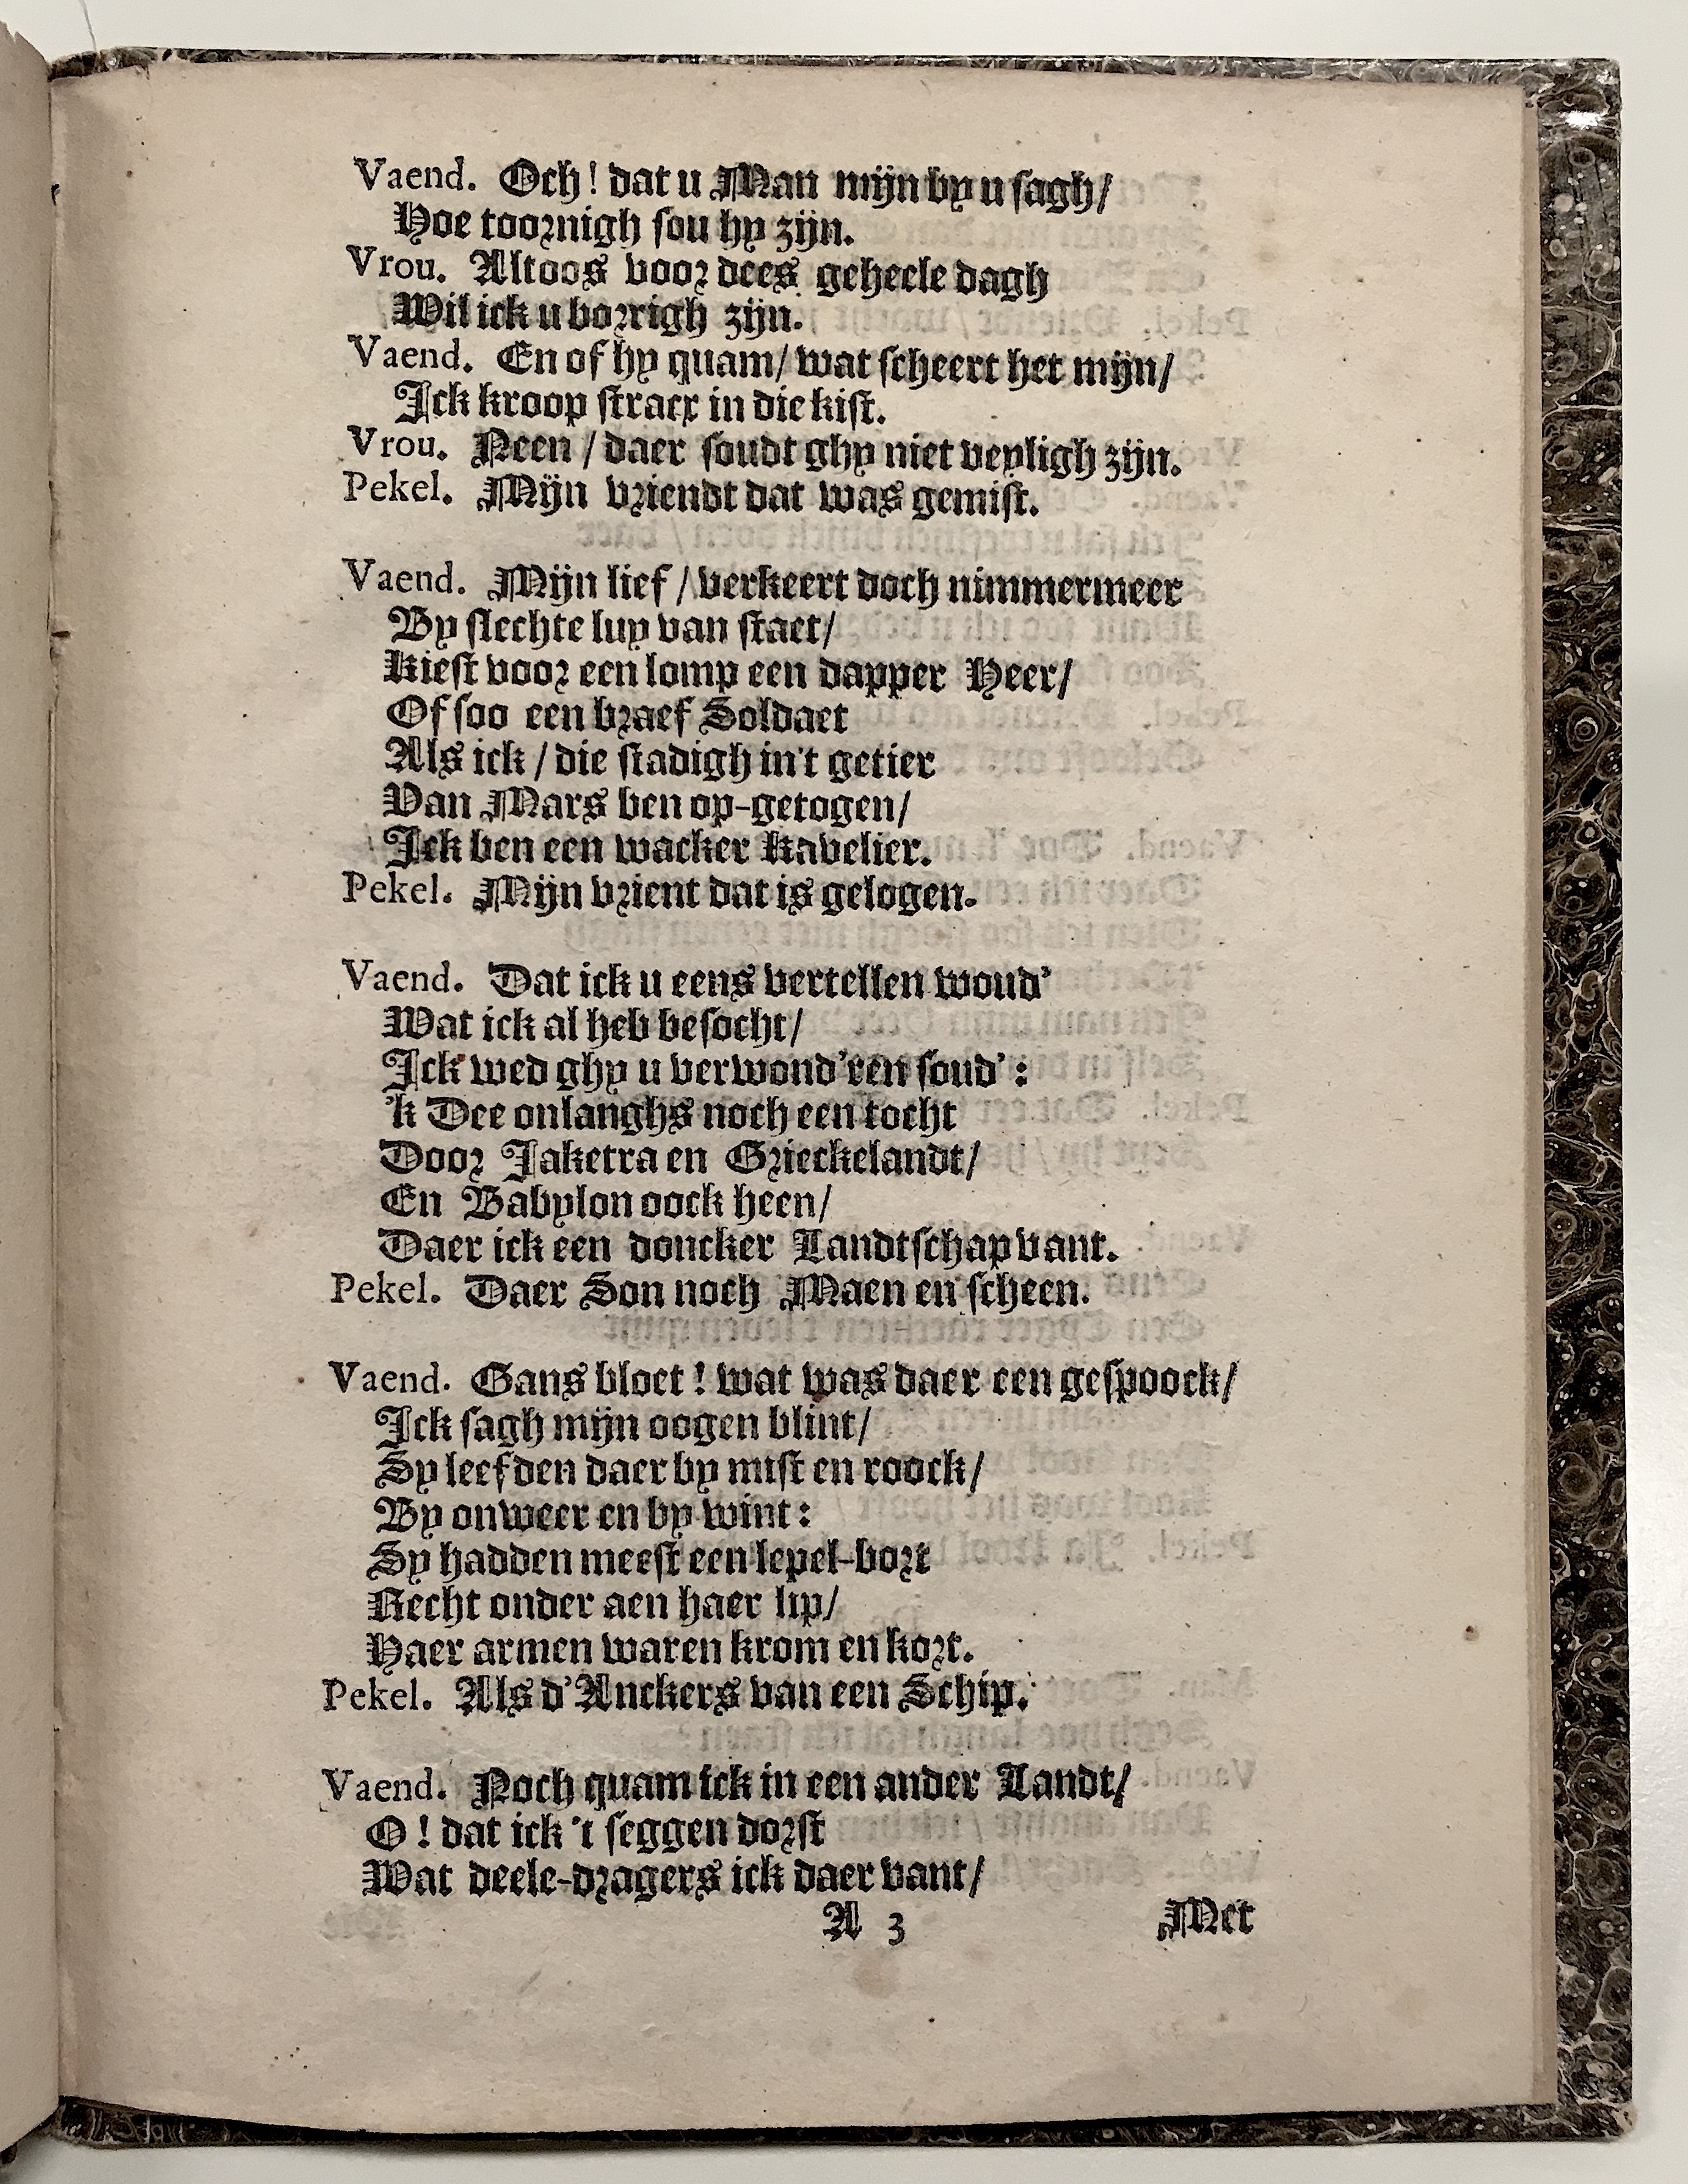 Vaend. Och! dat u Man mijn by u sagh/
Hoe toornigh sou hy zijn.
Vrou. Altoos voor dees geheele dagh
Wil ick u borrigh zijn.
Vaend. En of hy quam/ wat scheert het mijn/
Ick kroop stracx in die kist.
Vrou. Neen / daer soudt ghy niet veyligh zijn.
Pekel. Mijn vriendt dat was gemist.
Vaend. Mijn lief / verkeert doch nimmermeer
By slechte luy van staet/
Kiest voor een lomp een dapper Heer/
Of soo een braef Soldaet
Als ick / die stadigh in't getier
Van Mars ben op-getogen/
Ick ben een wacker Kavelier.
Pekel. Mijn vrient dat is gelogen.
Vaend. Dat ick u eens vertellen woud'
Wat ick al heb besocht/
Ick wed ghy u verwond'ren soud' :
'k Dee onlanghs noch een tocht
Door Jaketra en Grieckelandt/
En Babylon oock heen/
Daer ick een doncker Landtschap vant.
Pekel. Daer Son noch Maen en scheen.
Vaend. Gans bloet ! wat was daer een gespoock/
Ick sagh mijn oogen blint/
Sy leefden daer by mist en roock/
By onweer en by wint :
Sy hadden meest een lepel-bort
Recht onder aen haer lip/
Haer armen waren krom en kort.
Pekel. Als d'Anckers van een Schip.
Vaend. Noch quam ick in een ander Landt/
O ! dat ick 't seggen dorst
Wat deele-dragers ick daer vant/
A 3 Met